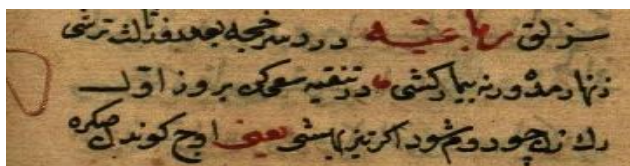 سزلق رباعیه در دسر خجه بعد ترشی
زنهار مده ورنه بیمار کشی در تنقیه سعی کن بروز اول
رك زن چو دوم شود اکر تیزهشی یعنی اوج کوندن صکره